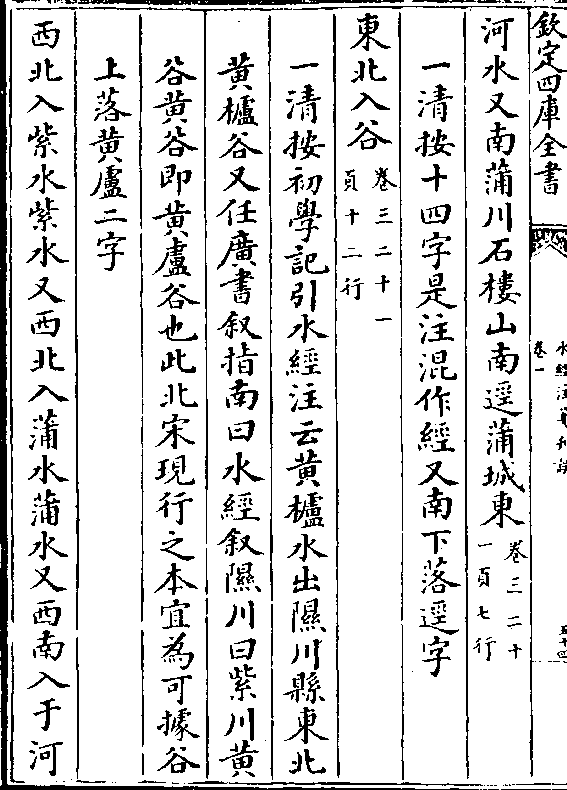 欽定四庫全書
水經注箋刊誤
卷一
五十四
河水又南蒲川石樓山南逕蒲城東卷三二十一頁七行
一清按十四字是注混作經又南下落逕字
東北入谷卷三二十一頁十二行
一清按初學記引水經注云黃櫨水出隰川縣東北
黃櫨谷又任廣書叙指南曰水經叙隰川曰紫川黃
谷黃谷即黃盧谷也此北宋現行之本宜為可據谷
上落黃盧二字
西北入紫水紫水又西北入蒲水蒲水又西南入于河